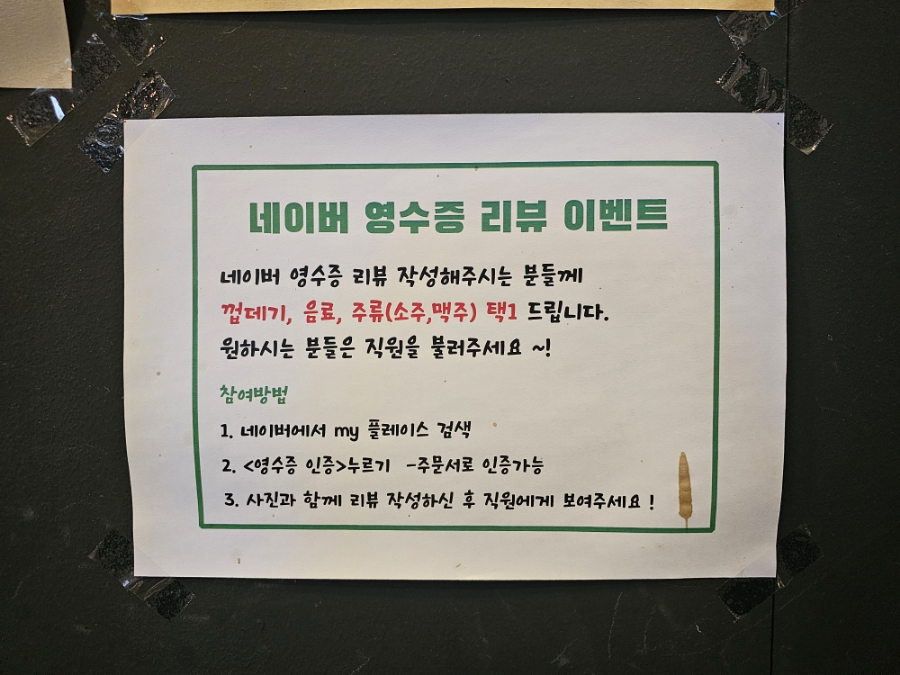 네이버 영수증 리뷰 이벤트
네이버 영수증 리뷰 작성해주시는 분들께
껍데기, 음료, 주류(소주,맥주) 택1 드립니다.
원하시는 분들은 직원을 불러주세요 ~!
참여방법
1. 네이버에서 my 플레이스 검색
2. <영수증 인증>누르기 -주문서로 인증가능
3. 사진과 함께 리뷰 작성하신 후 직원에게 보여주세요 !